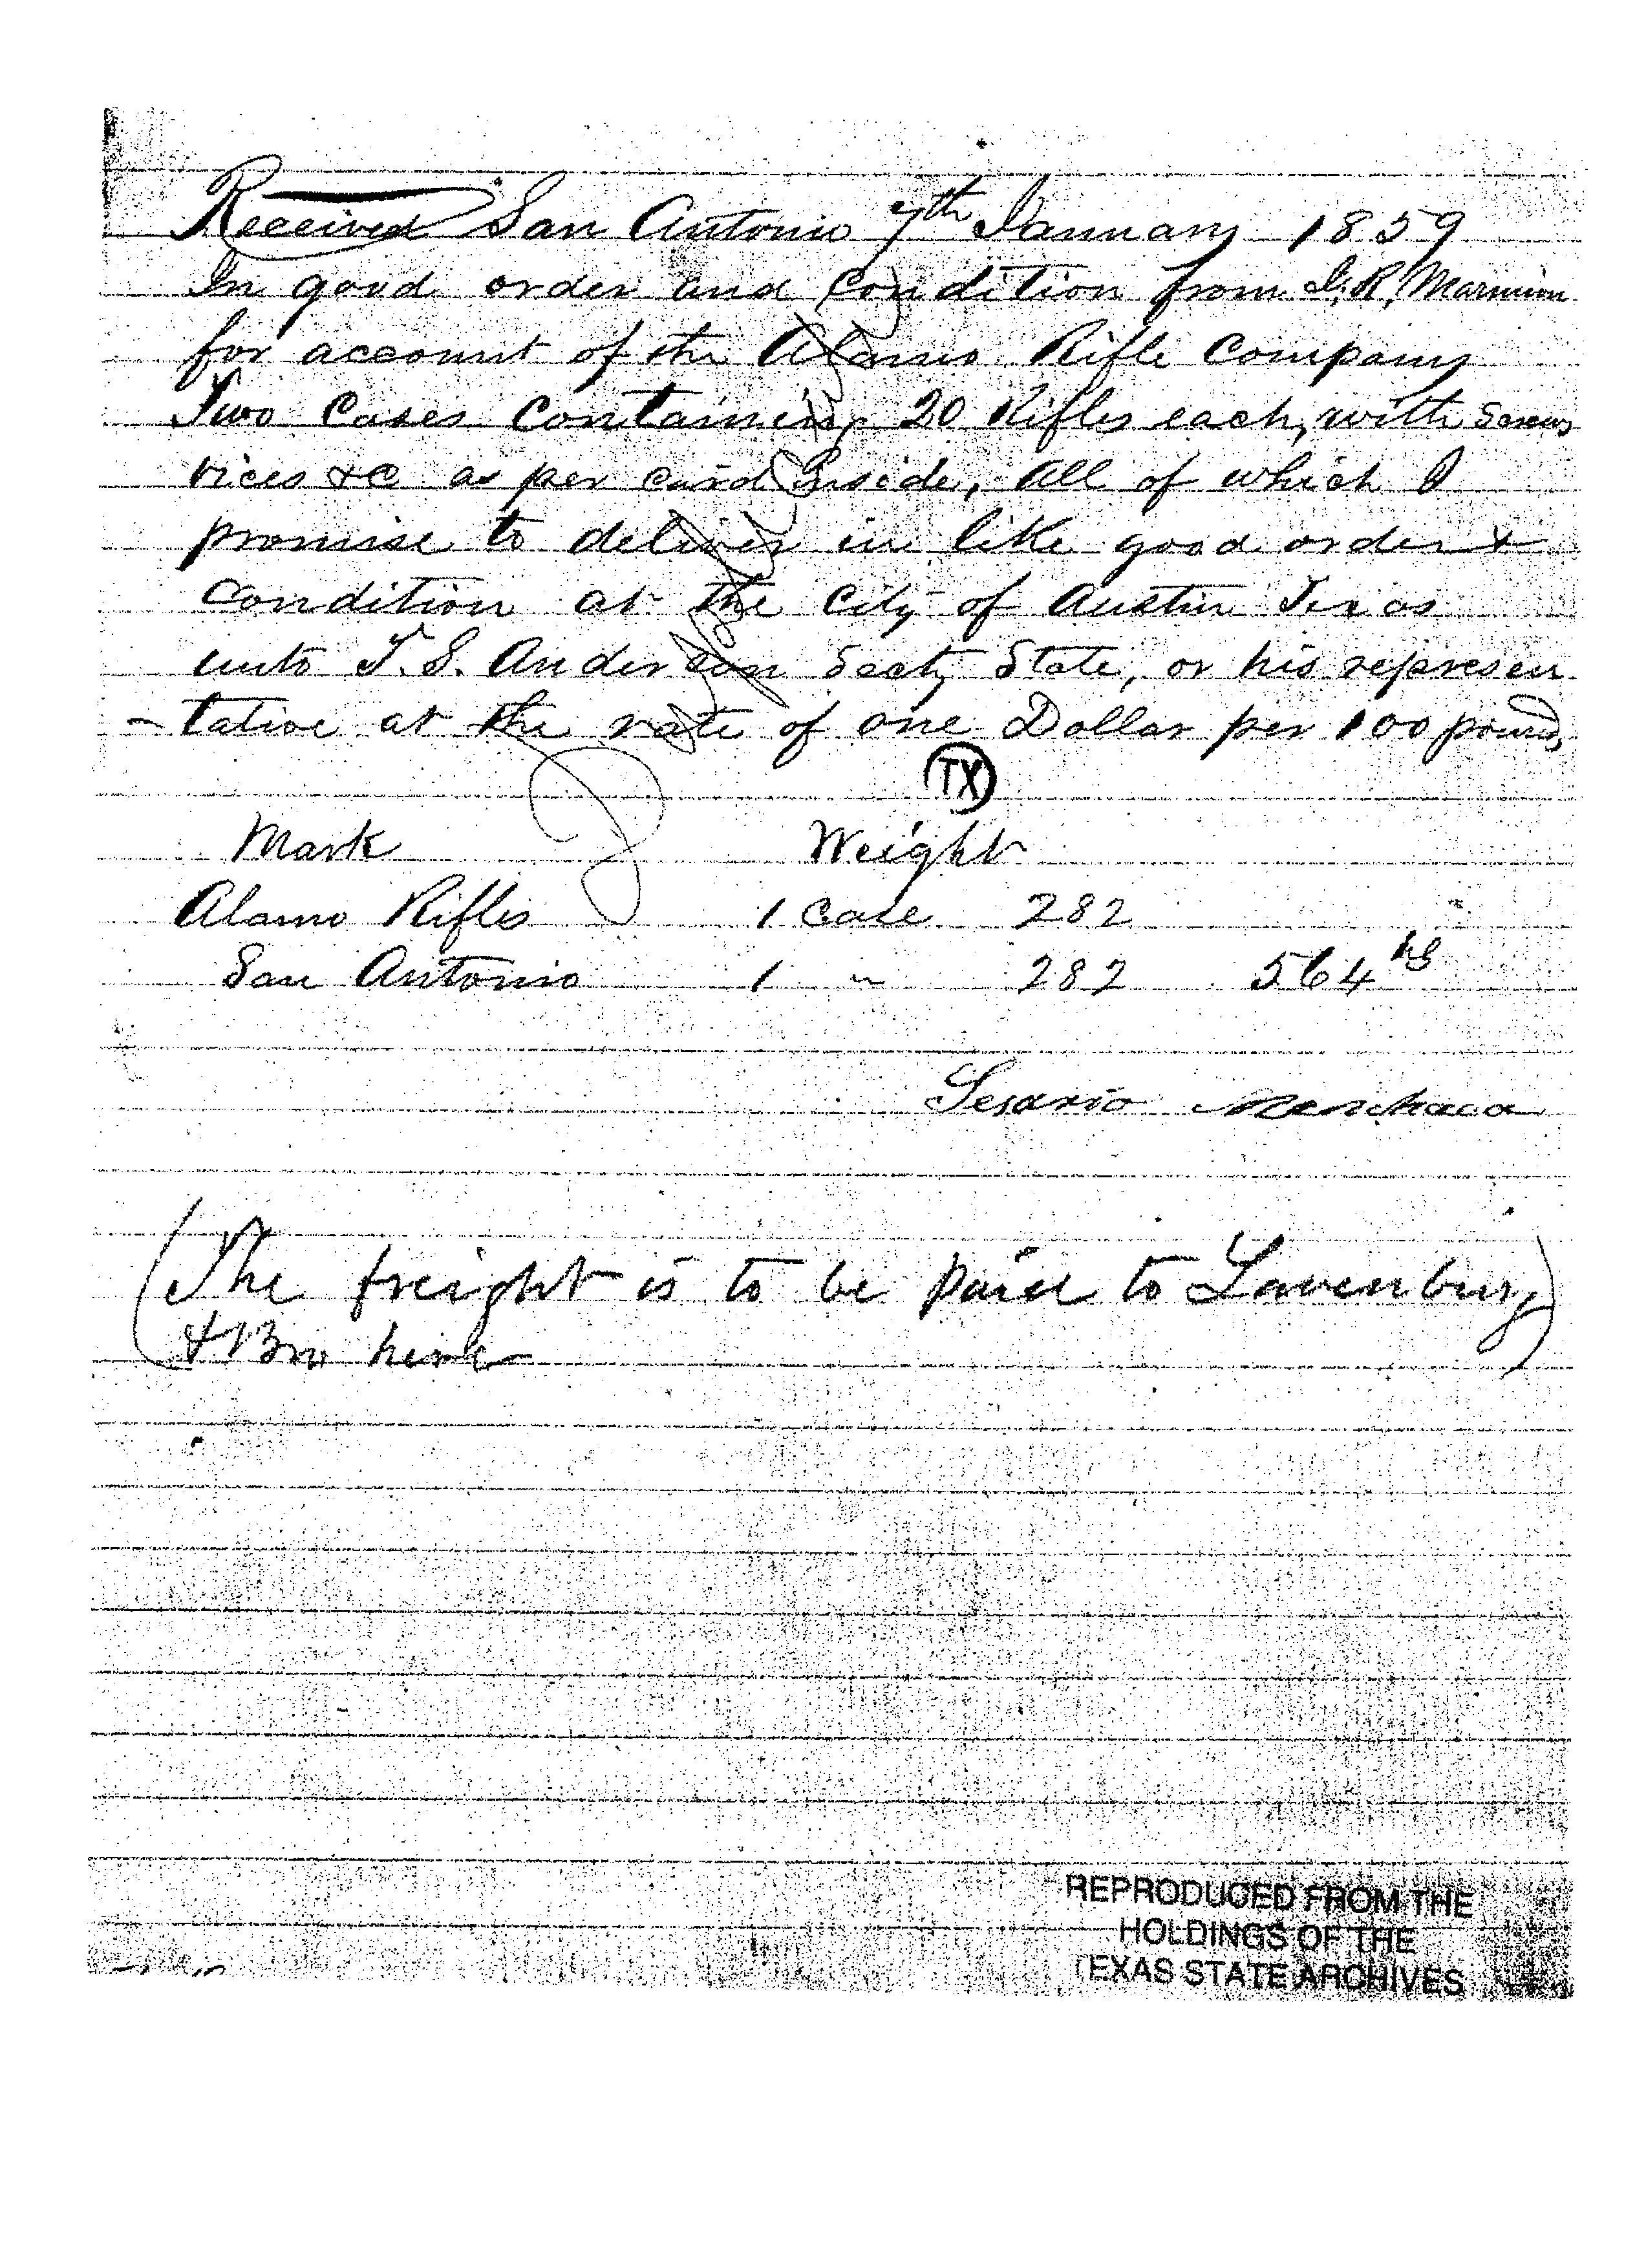 Received San Antonio 7th January 1859
In good order and condition from I. R. Marmion
for account of the Alamo Rifle Company
Two Cases Containing 20 Rifles each, with Screws
vices &c as per card inside, all of which I
promise to deliver in like good order &
Condition at the City of Austin Texas
unto T. S. Anderson Secty State, or his represen
-tative at the rate of one Dollar per 100 pounds,
TX
Mark Weight
Alamo Rifles 1 Case 282
San Antonio 1 " 282 564 lbs
Sesario Menchaca
(The freight is to be paid to Lavenburg
& Bro here)
REPRODUCED FROM THE
HOLDINGS OF THE
TEXAS STATE ARCHIVES